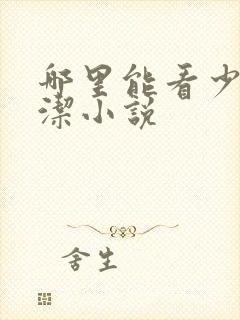 哪里能看少
潔小說
舍生